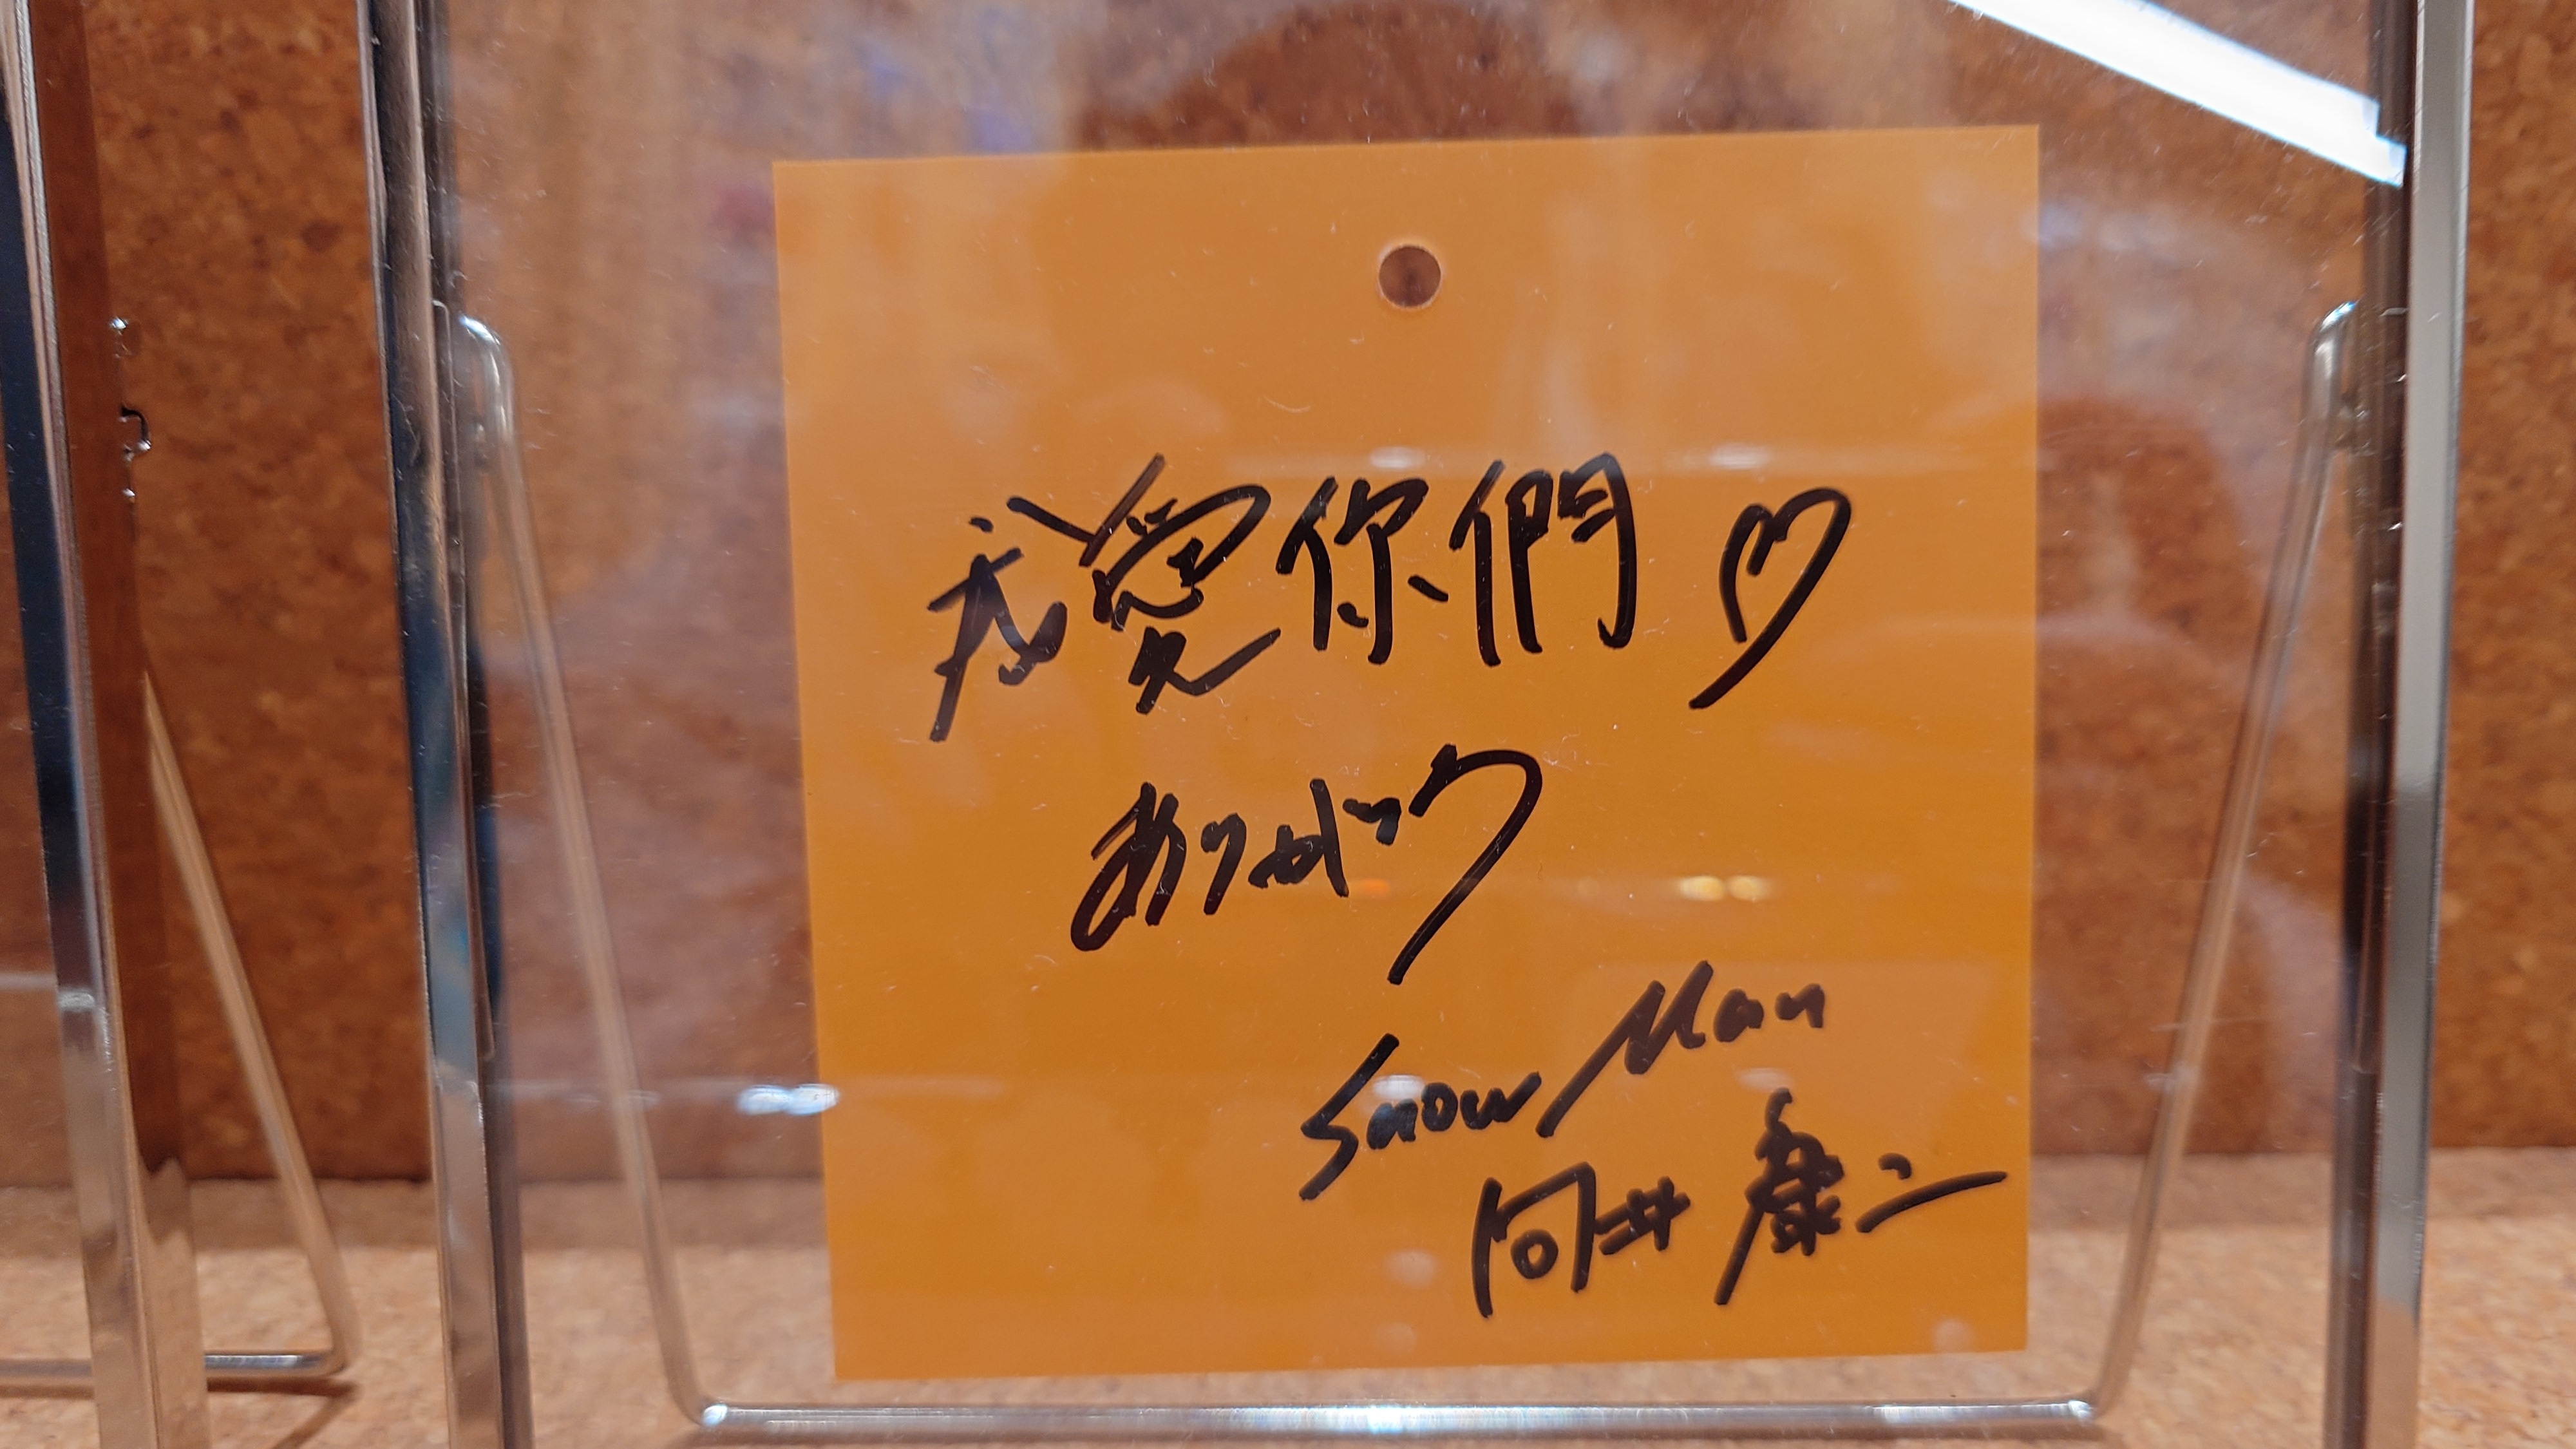 我愛你們♡
ありがとう
Snow Man
向井康二